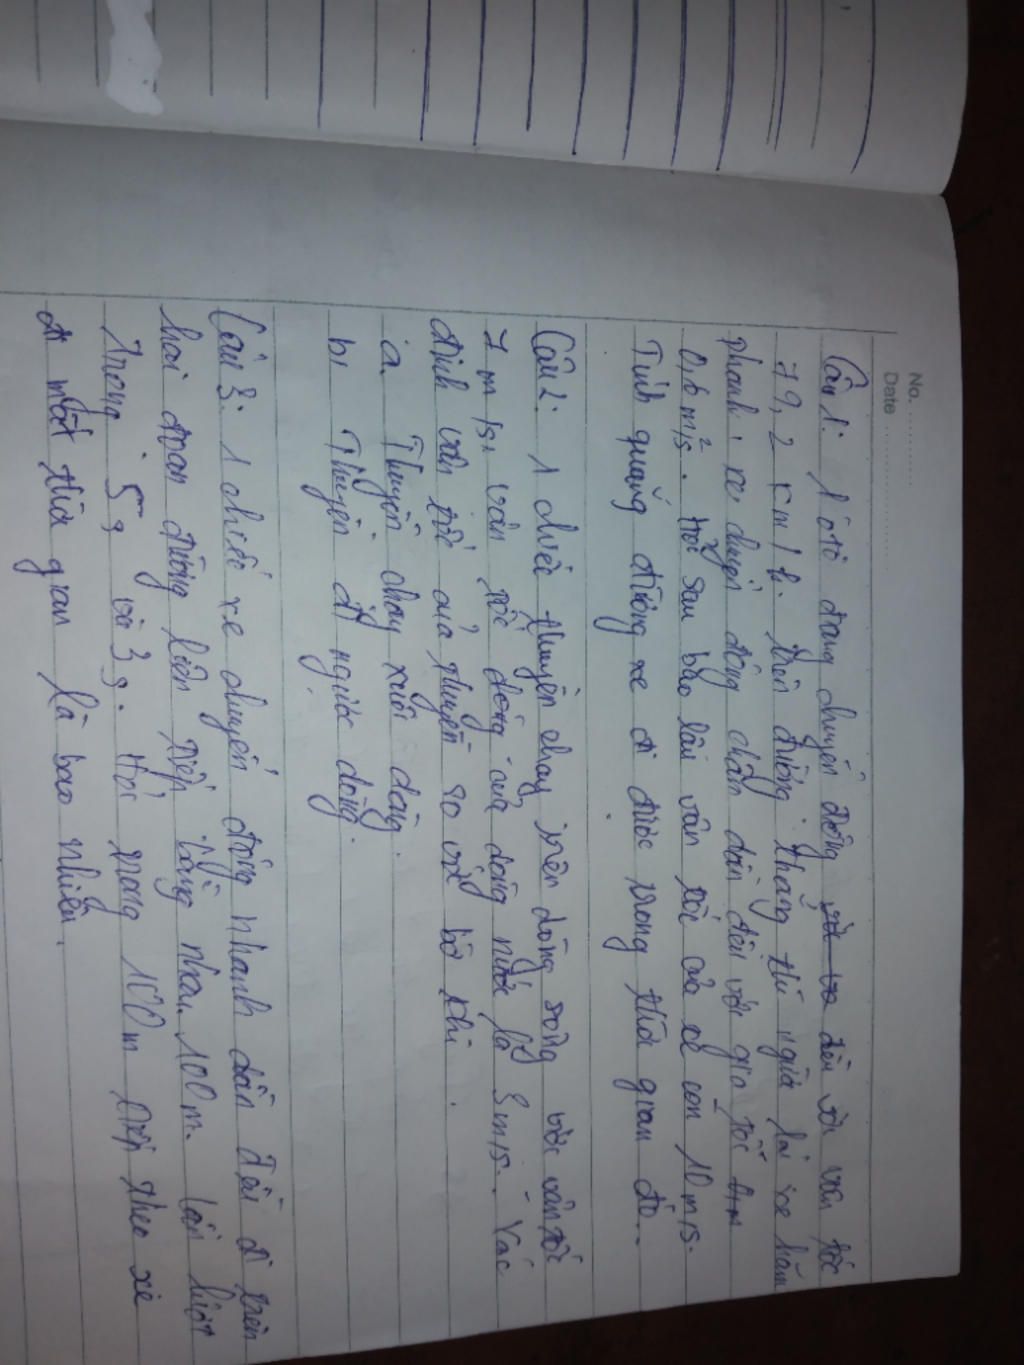 No. ............
Date ..................
Câu 1: 1 ô tô đang chuyển động đều với vận tốc
79,2 km/h. trên đường thẳng thì người lái xe hãm
phanh. xe chuyển động chậm dần đều với gia tốc
0,6 m/s². Hỏi sau bao lâu vận tốc của xe còn 10 m/s.
Tính quãng đường xe đi được trong thời gian đó.
Câu 2: 1 chiếc thuyền chạy trên dòng sông với vận tốc
7 m/s, vận tốc dòng của dòng nước là 3 m/s. Xác
định vận tốc của thuyền so với bờ khi.
a. Thuyền chạy xuôi dòng.
b, Thuyền đi ngược dòng.
Câu 3: 1 chiếc xe chuyển động nhanh dần đều đi trên
hai đoạn đường liên tiếp bằng nhau 100m. lần lượt
trong 5s và 3s. Hỏi trong 100m tiếp theo xe
đi mất thời gian là bao nhiêu.